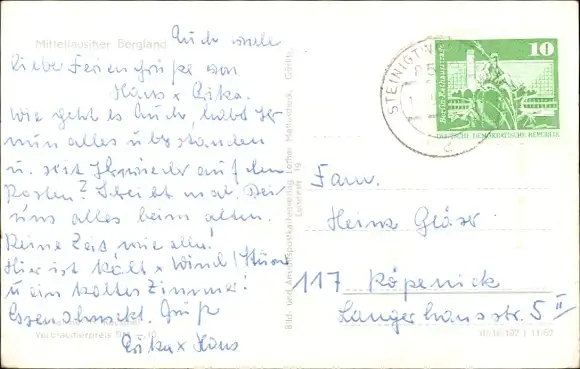 Mittellausitzer Bergland
Euch viele
liebe Feriengrüße von
Hans x Erika.
Wie geht es Euch, habt Ihr
nun alles überstanden
u. seit Ihr wieder auf den
Posten? Schreibt mal. Bei
uns alles beim alten.
Keine Zeit wie alle!
Hier ist kalt x Wind / Sturm
u ein kaltes Zimmer!
Essen schmeckt. Gruß
Erika x Hans
Verbraucherpreis
Bild- und Ansichtspostkartenverlag Lothar
STEINIGTW
10
Berlin-Rathausstraße
DEUTSCHE DEMOKRATISCHE REPUBLIK
Fam.
Heinz Gläser
117 Köpenick
Langerhansstr. 5 II